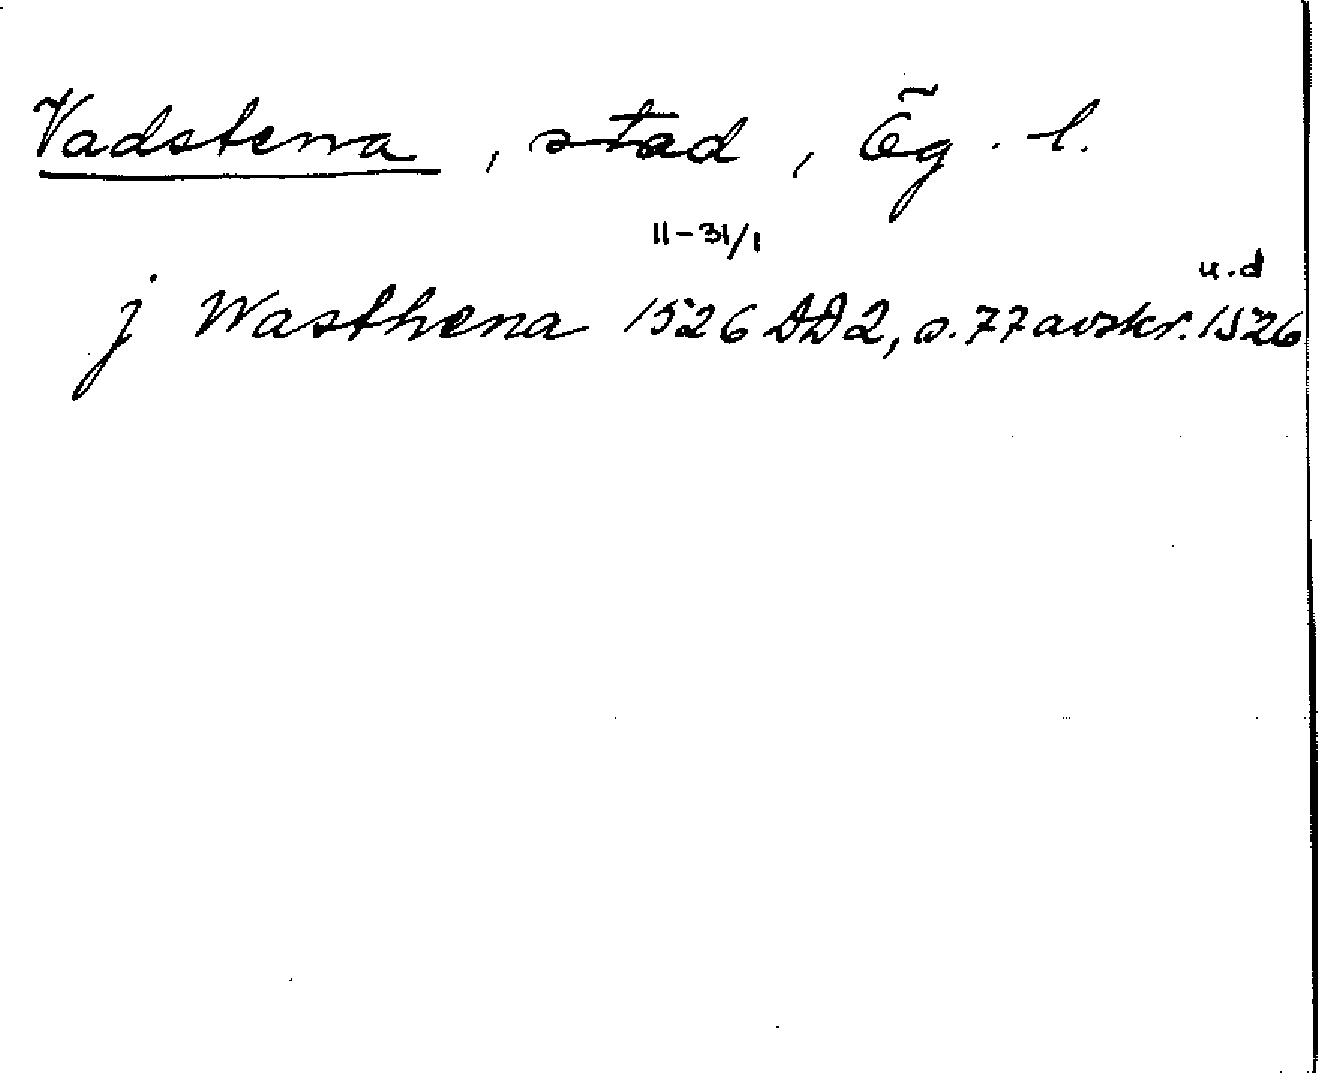 Vadstena, stad, Ög. l.
11-31/1
u.d
j Wasthena 1526 DD2, s. 77 avskr. 1526